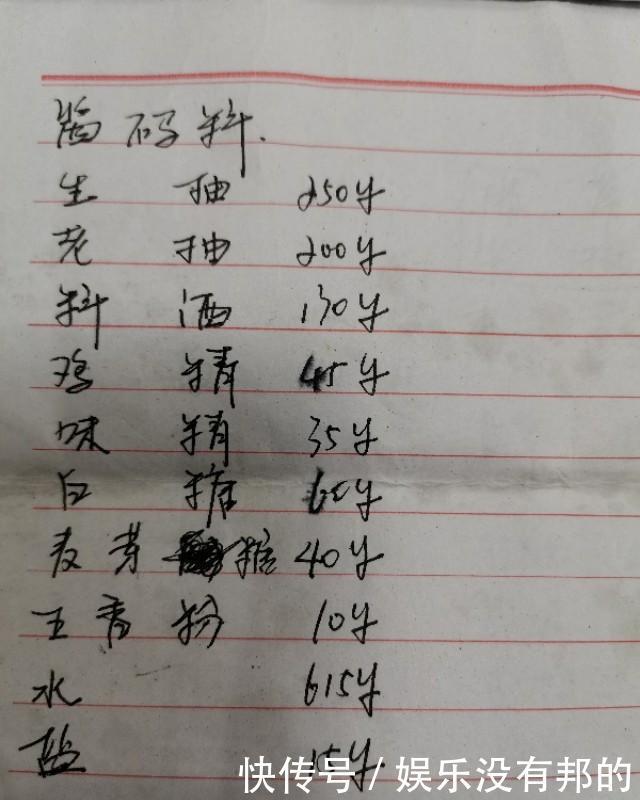 码料.
生抽 250g
老抽 200g
料酒 130g
鸡精 45g
味精 35g
白糖 60g
麦芽糖 40g
五香粉 10g
水 615g
盐 15g
快传号/娱乐没有邦的